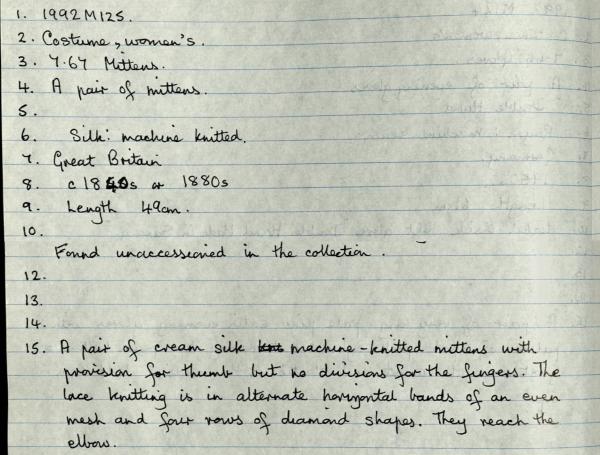 1. 1992M125.
2. Costume, women's.
3. 7.67 Mittens.
4. A pair of mittens.
5.
6. Silk: machine knitted.
7. Great Britain
8. c 1840s or 1880s
9. Length 49cm.
10.
Found unaccessioned in the collection.
12.
13.
14.
15. A pair of cream silk machine-knitted mittens with
provision for thumb but no divisions for the fingers. The
lace knitting is in alternate horizontal bands of an even
mesh and four rows of diamond shapes. They reach the
elbow.